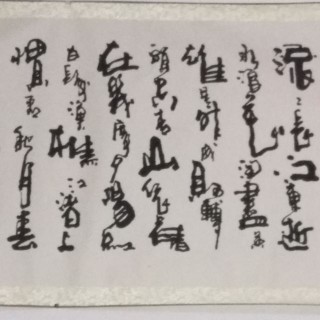 滚滚長江東逝
水浪花淘盡英
雄是非成敗轉
頭空青山依舊
在幾度夕陽紅
白髮漁樵江渚上
慣看秋月春